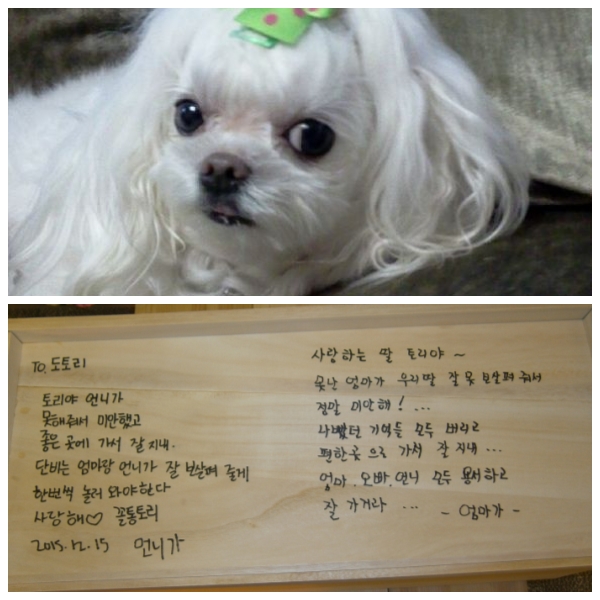 TO. 도토리
토리야 언니가
못해줘서 미안했고
좋은 곳에 가서 잘 지내.
단비는 엄마랑 언니가 잘 보살펴 줄게
한번씩 놀러 와야한다
사랑해♡ 꼴통토리
2015.12.15 언니가
사랑하는 딸 토리야 ~
못난 엄마가 우리딸 잘 못 보살펴 줘서
정말 미안해! ...
나빴던 기억들 모두 버리고
편한곳으로 가서 잘 지내 ...
엄마. 오빠. 언니 모두 용서하고
잘 가거라 ... - 엄마가 -